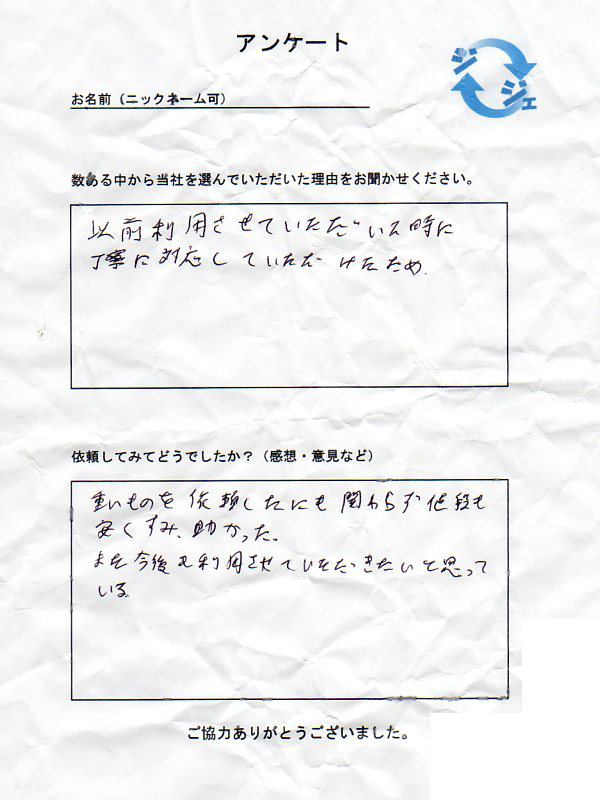 アンケート
ジジェ
お名前（ニックネーム可）
数ある中から当社を選んでいただいた理由をお聞かせください。
以前利用させていただいた時に
丁寧に対応していただけたため.
依頼してみてどうでしたか？（感想・意見など）
重いものを依頼したにも関わらず値段も
安くすみ、助かった。
また今後も利用させていただきたいと思って
いる
ご協力ありがとうございました。